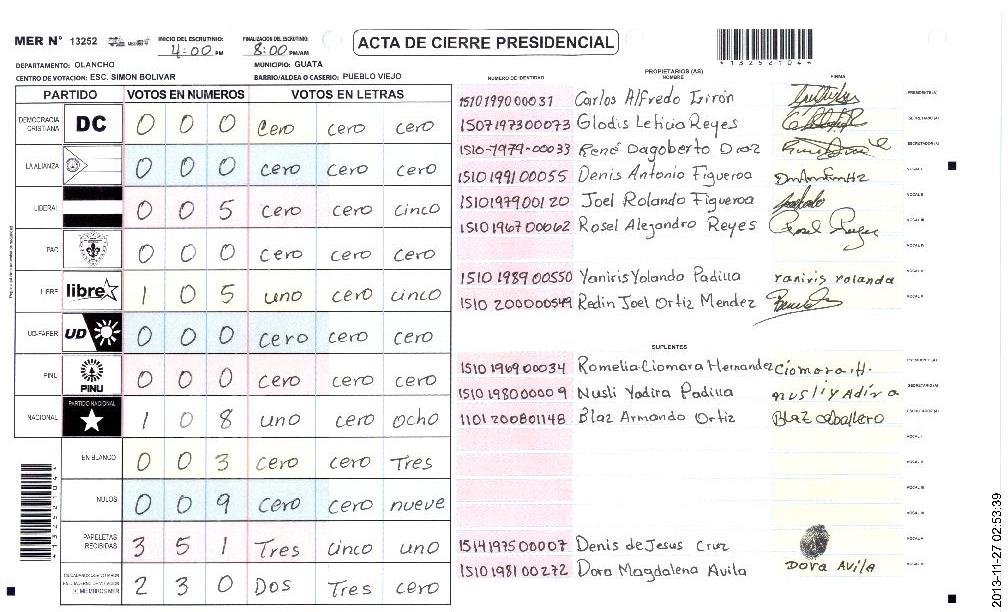 MER N° 13252 INICIO DEL ESCRUTINIO: 4:00 PM FINALIZACIÓN DEL ESCRUTINIO: 8:00 PM/AM ACTA DE CIERRE PRESIDENCIAL
4132521044
DEPARTAMENTO: OLANCHO MUNICIPIO: GUATA
CENTRO DE VOTACION: ESC. SIMON BOLIVAR BARRIO/ALDEA O CASERIO: PUEBLO VIEJO
PARTIDO VOTOS EN NUMEROS VOTOS EN LETRAS
DEMOCRACIA CRISTIANA DC 0 0 0 cero cero cero
LA ALIANZA 0 0 0 cero cero cero
LIBERAL 0 0 5 cero cero cinco
PAC 0 0 0 cero cero cero
LIBRE libre 1 0 5 uno cero cinco
UD-FAPER UD 0 0 0 cero cero cero
PINU PINU 0 0 0 cero cero cero
NACIONAL PARTIDO NACIONAL 1 0 8 uno cero ocho
EN BLANCO 0 0 3 cero cero Tres
NULOS 0 0 9 cero cero nueve
PAPELETAS RECIBIDAS 3 5 1 Tres cinco uno
CIUDADANOS QUE VOTARON EN CUADERNO DE VOTACION (+) MIEMBROS MER 2 3 0 Dos Tres cero
PROPIETARIOS (AS)
NUMERO DE IDENTIDAD NOMBRE FIRMA
1510199000031 Carlos Alfredo Girón PRESIDENTE (A)
1507197300073 Glodis Leticia Reyes SECRETARIO (A)
1510-7979-00033 René Dagoberto Diaz ESCRUTADOR (A)
1510199100055 Denis Antonio Figueroa VOCAL I
1510197900120 Joel Rolando Figueroa VOCAL II
1510196700062 Rosel Alejandro Reyes VOCAL III
VOCAL IV
1510198900550 Yaniris Yolanda Padilla Yaniris Yolanda VOCAL V
1510200000549 Redin Joel Ortiz Mendez
SUPLENTES
1510196900034 Romelia Ciomara Hernandez Ciomara H. PRESIDENTE (A)
1510198000009 Nusli Yadira Padilla nusli yadira SECRETARIO (A)
1101200801148 Blaz Armando Ortiz Blaz caballero ESCRUTADOR (A)
VOCAL I
VOCAL II
VOCAL III
VOCAL IV
1514197500007 Denis de Jesus Cruz
1510198100272 Dora Magdalena Avila Dora Avila
2013-11-27 02:53:39